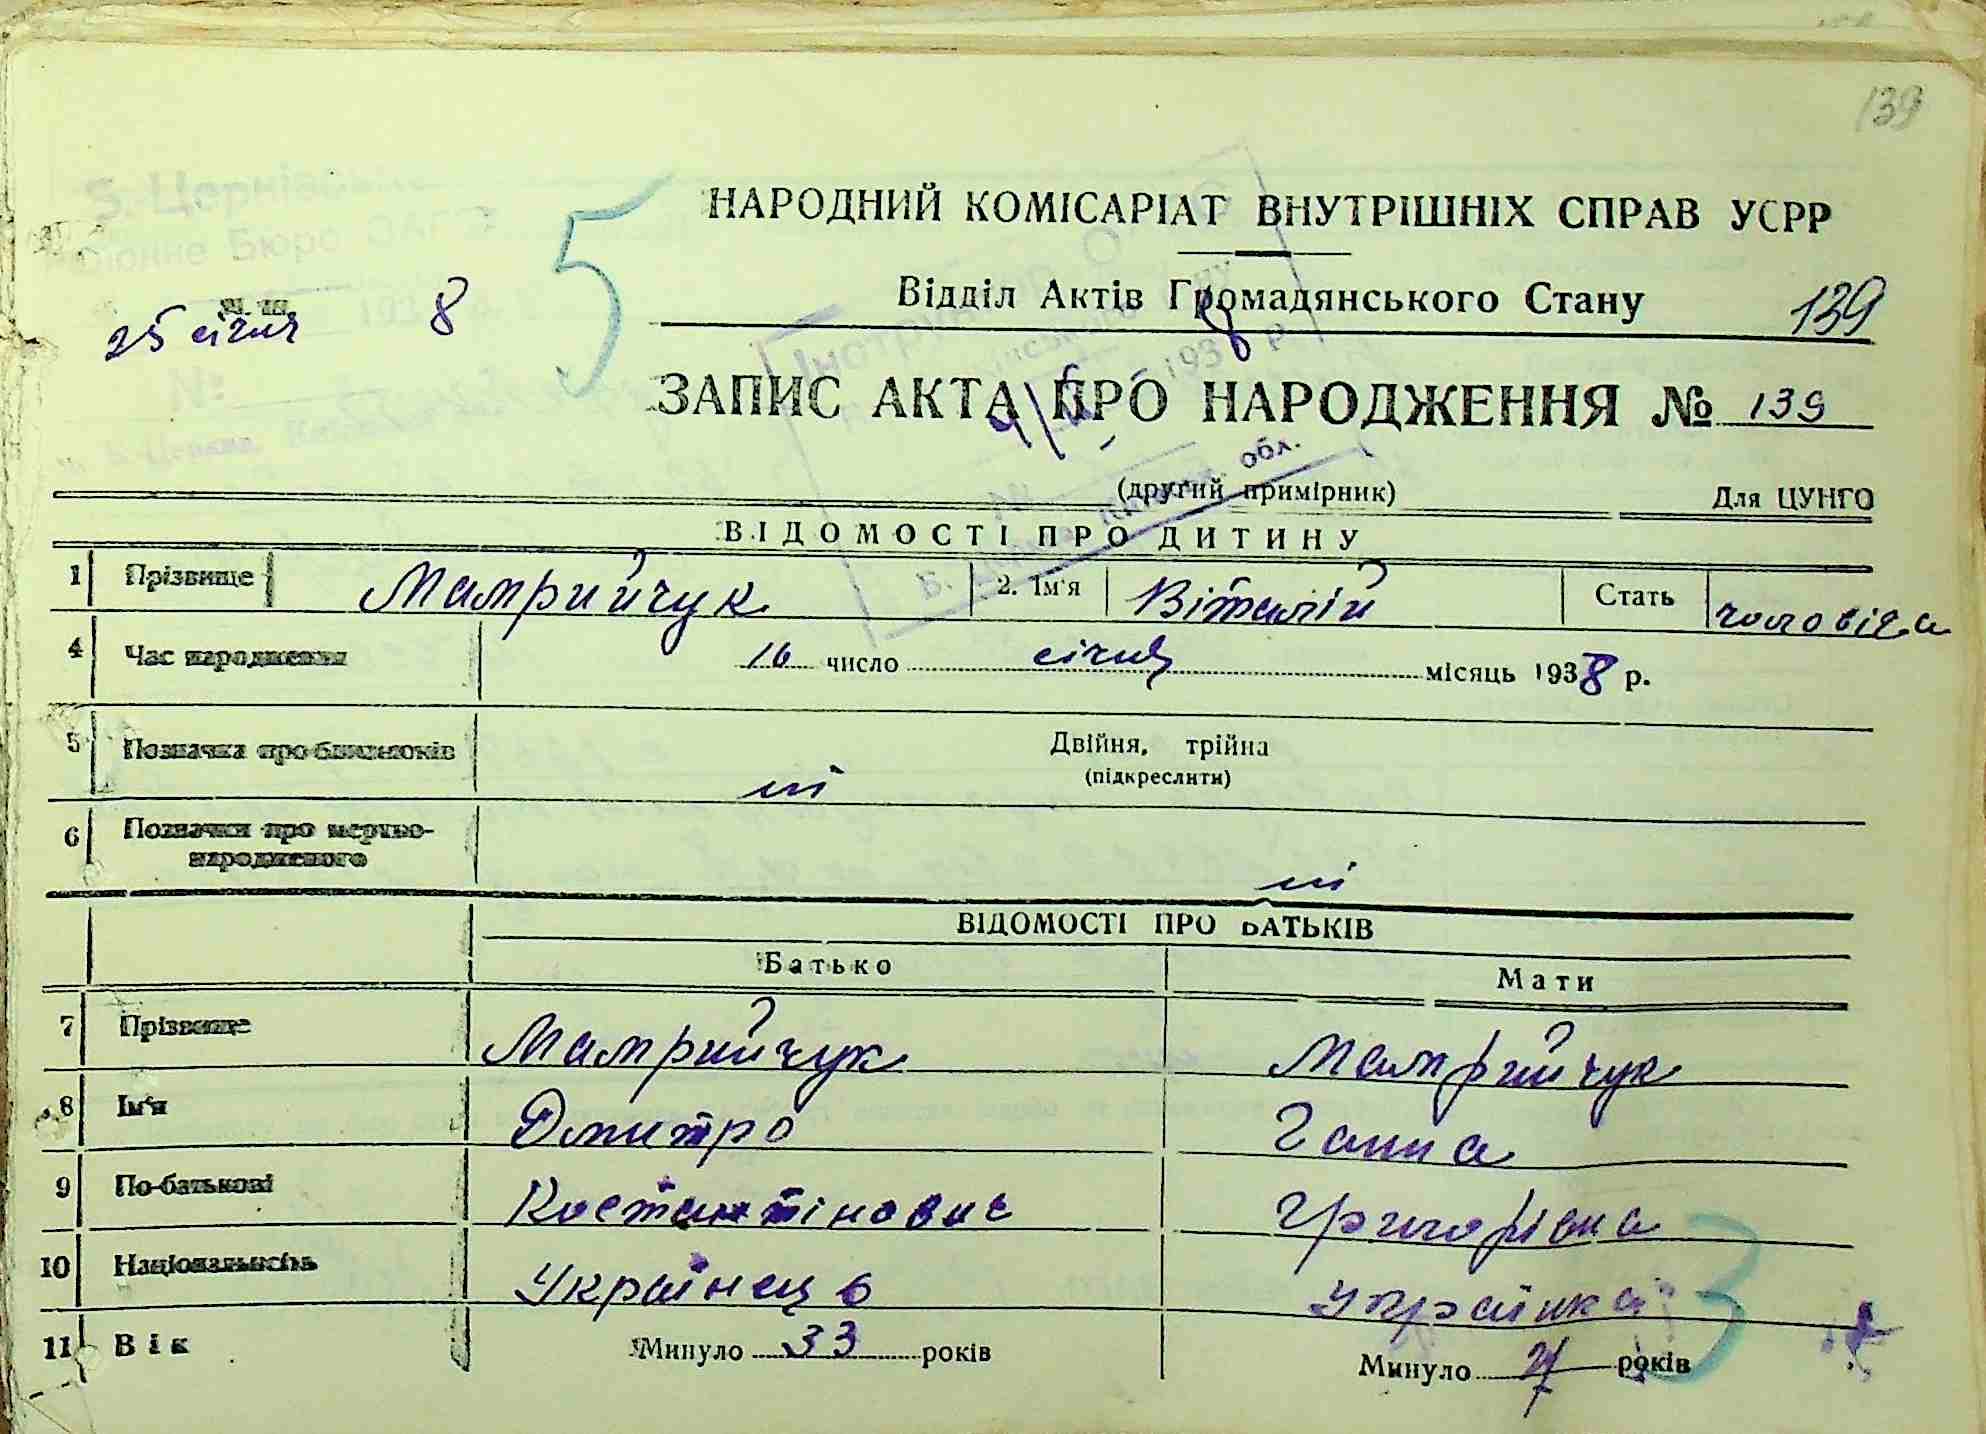 139
НАРОДНИЙ КОМІСАРІАТ ВНУТРІШНІХ СПРАВ УСРР
Відділ Актів Громадянського Стану 139
25 січня 8 5
ЗАПИС АКТА ПРО НАРОДЖЕННЯ № 139
(другий примірник) Для ЦУНГО
ВІДОМОСТІ ПРО ДИТИНУ
1 Прізвище Мамрийчук 2. Ім'я Віталій Стать чоловіча
4 Час народження 16 число січня місяць 1938 р.
5 Позначка про близнюків Двійня, трійня
(підкреслити)
ні
6 Позначки про мертво-
народженого
ні
ВІДОМОСТІ ПРО БАТЬКІВ
Батько Мати
7 Прізвище Мамрийчук Мамрийчук
8 Ім'я Дмитро Ганна
9 По-батькові Костантінович Григорівна
10 Національність Українець Українка
11 Вік Минуло 33 років Минуло років
3